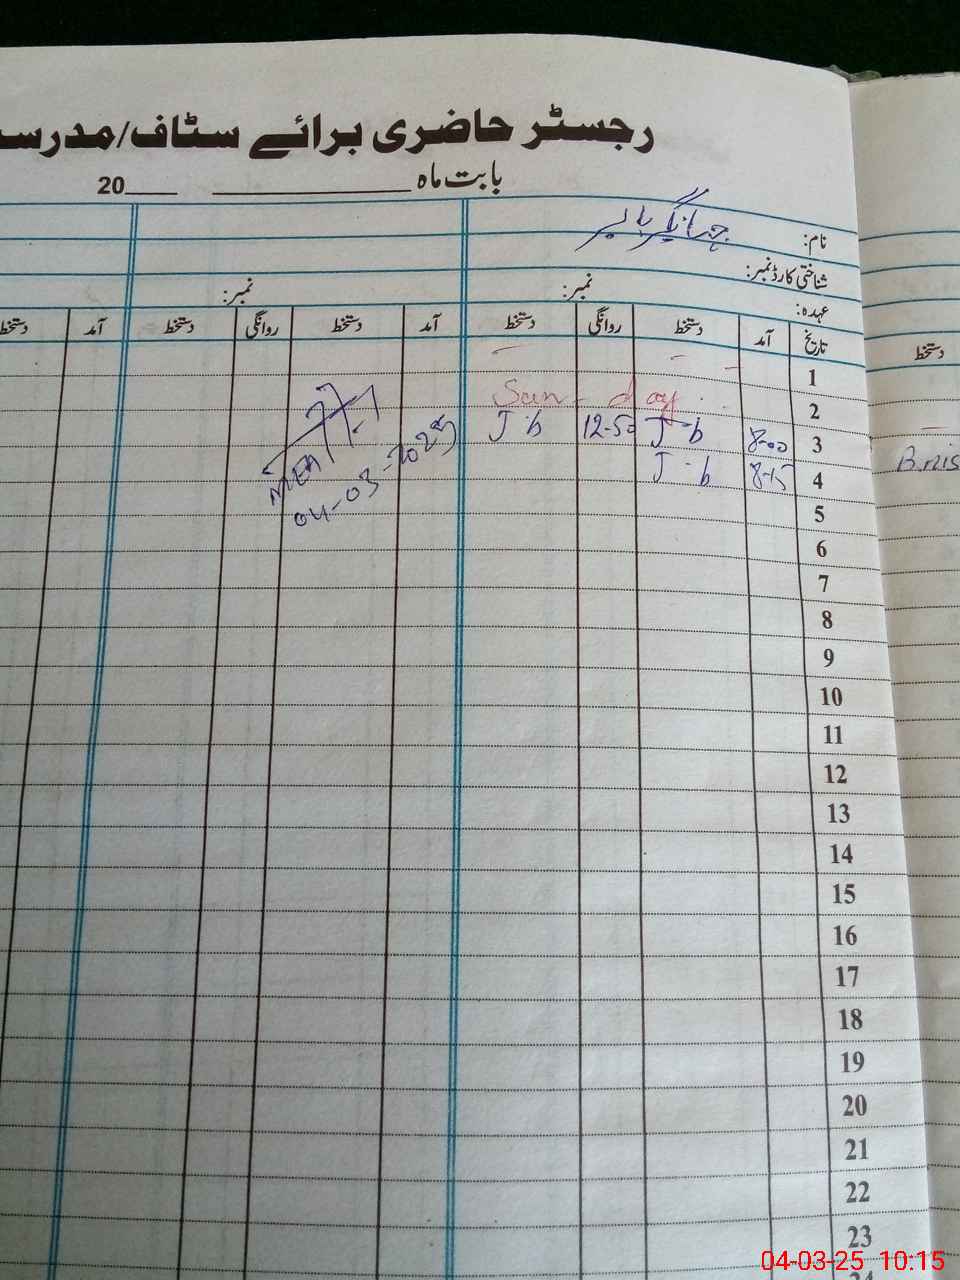 رجسٹر حاضری برائے سٹاف/مدرسہ
بابت ماہ ________ 20____
نام: جہانگیر بابر
شناختی کارڈ نمبر:
عہدہ: نمبر: نمبر:
تاریخ آمد دستخط روانگی دستخط آمد دستخط روانگی دستخط آمد دستخط
دستخط
1 - - -
2 Sun - day
3 8-00 J-b 12-50 J-b
4 8-15 J-b
MEA
04-03-2025
5
6
7
8
9
10
11
12
13
14
15
16
17
18
19
20
21
22
23
24
04-03-25 10:15